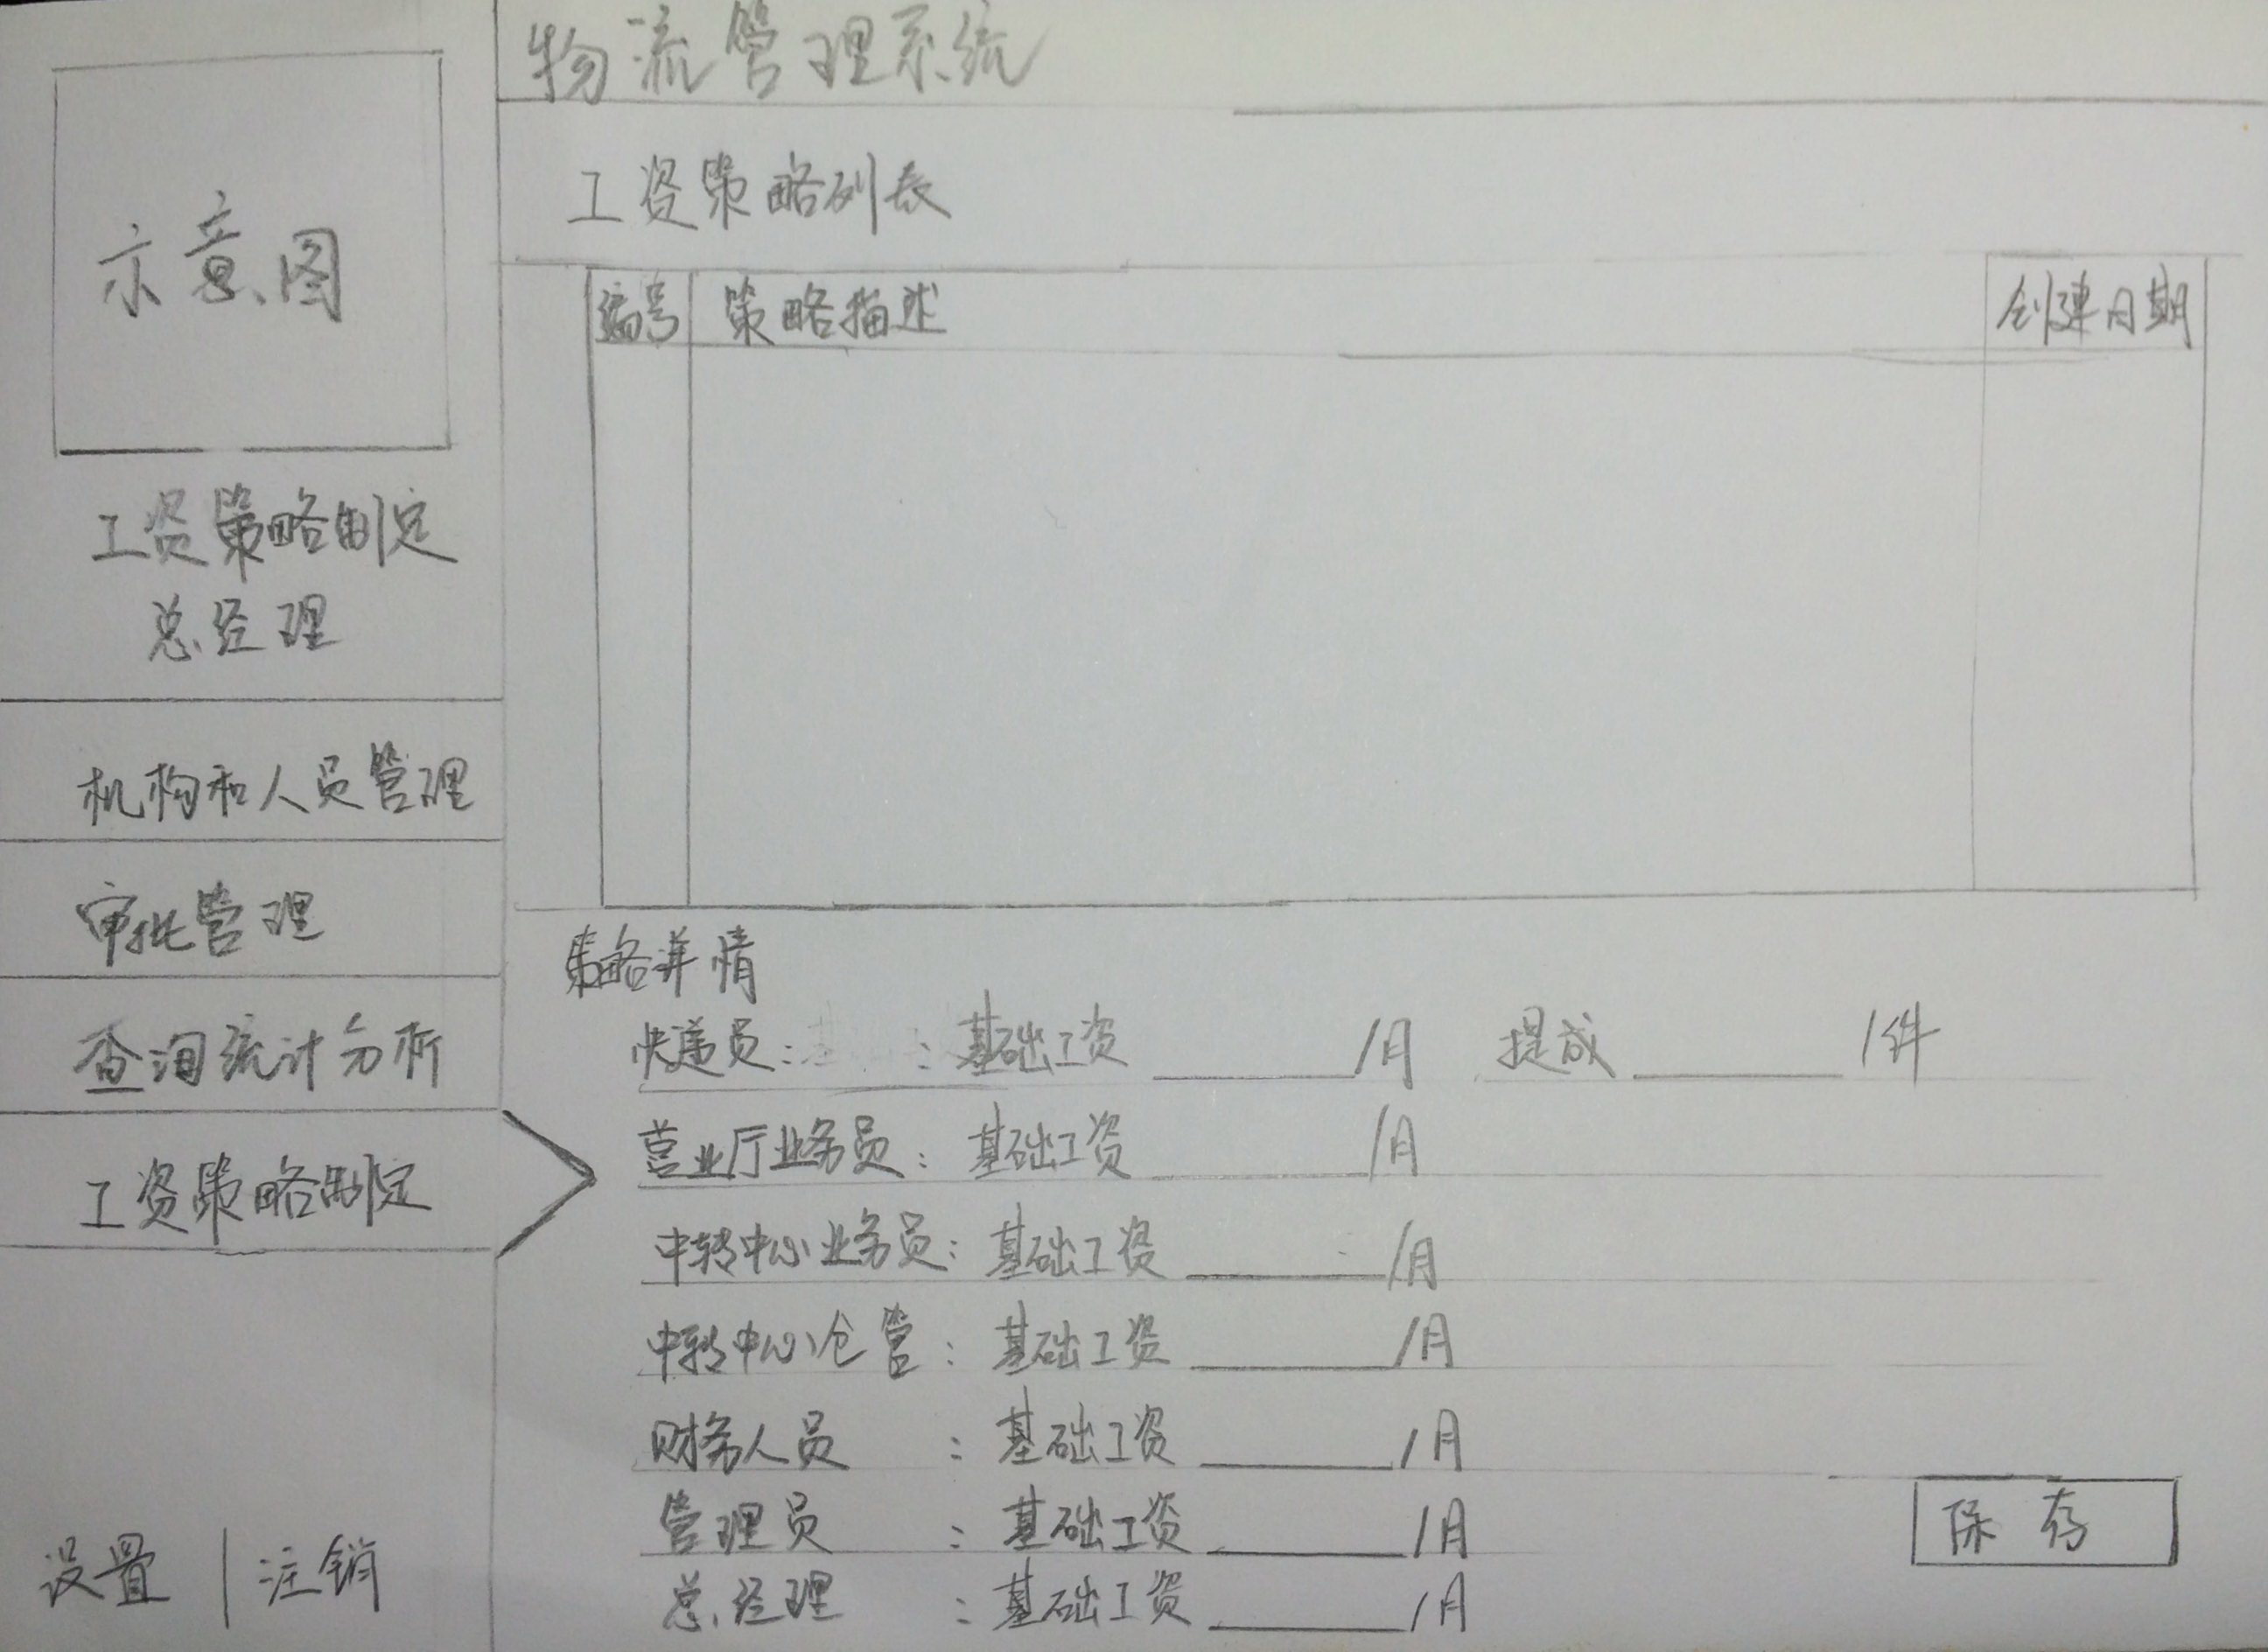 物流管理系统
示意图
工资策略制定
总经理
机构和人员管理
审批管理
查询统计分析
工资策略制定
设置 | 注销
工资策略列表
编号 策略描述 创建日期
策略详情
快递员: : 基础工资 ______/月 提成 ______ /件
营业厅业务员: 基础工资 ______/月
中转中心业务员: 基础工资 ______/月
中转中心仓管: 基础工资 ______/月
财务人员 : 基础工资 ______/月
管理员 : 基础工资 ______/月
总经理 : 基础工资 ______/月
保存